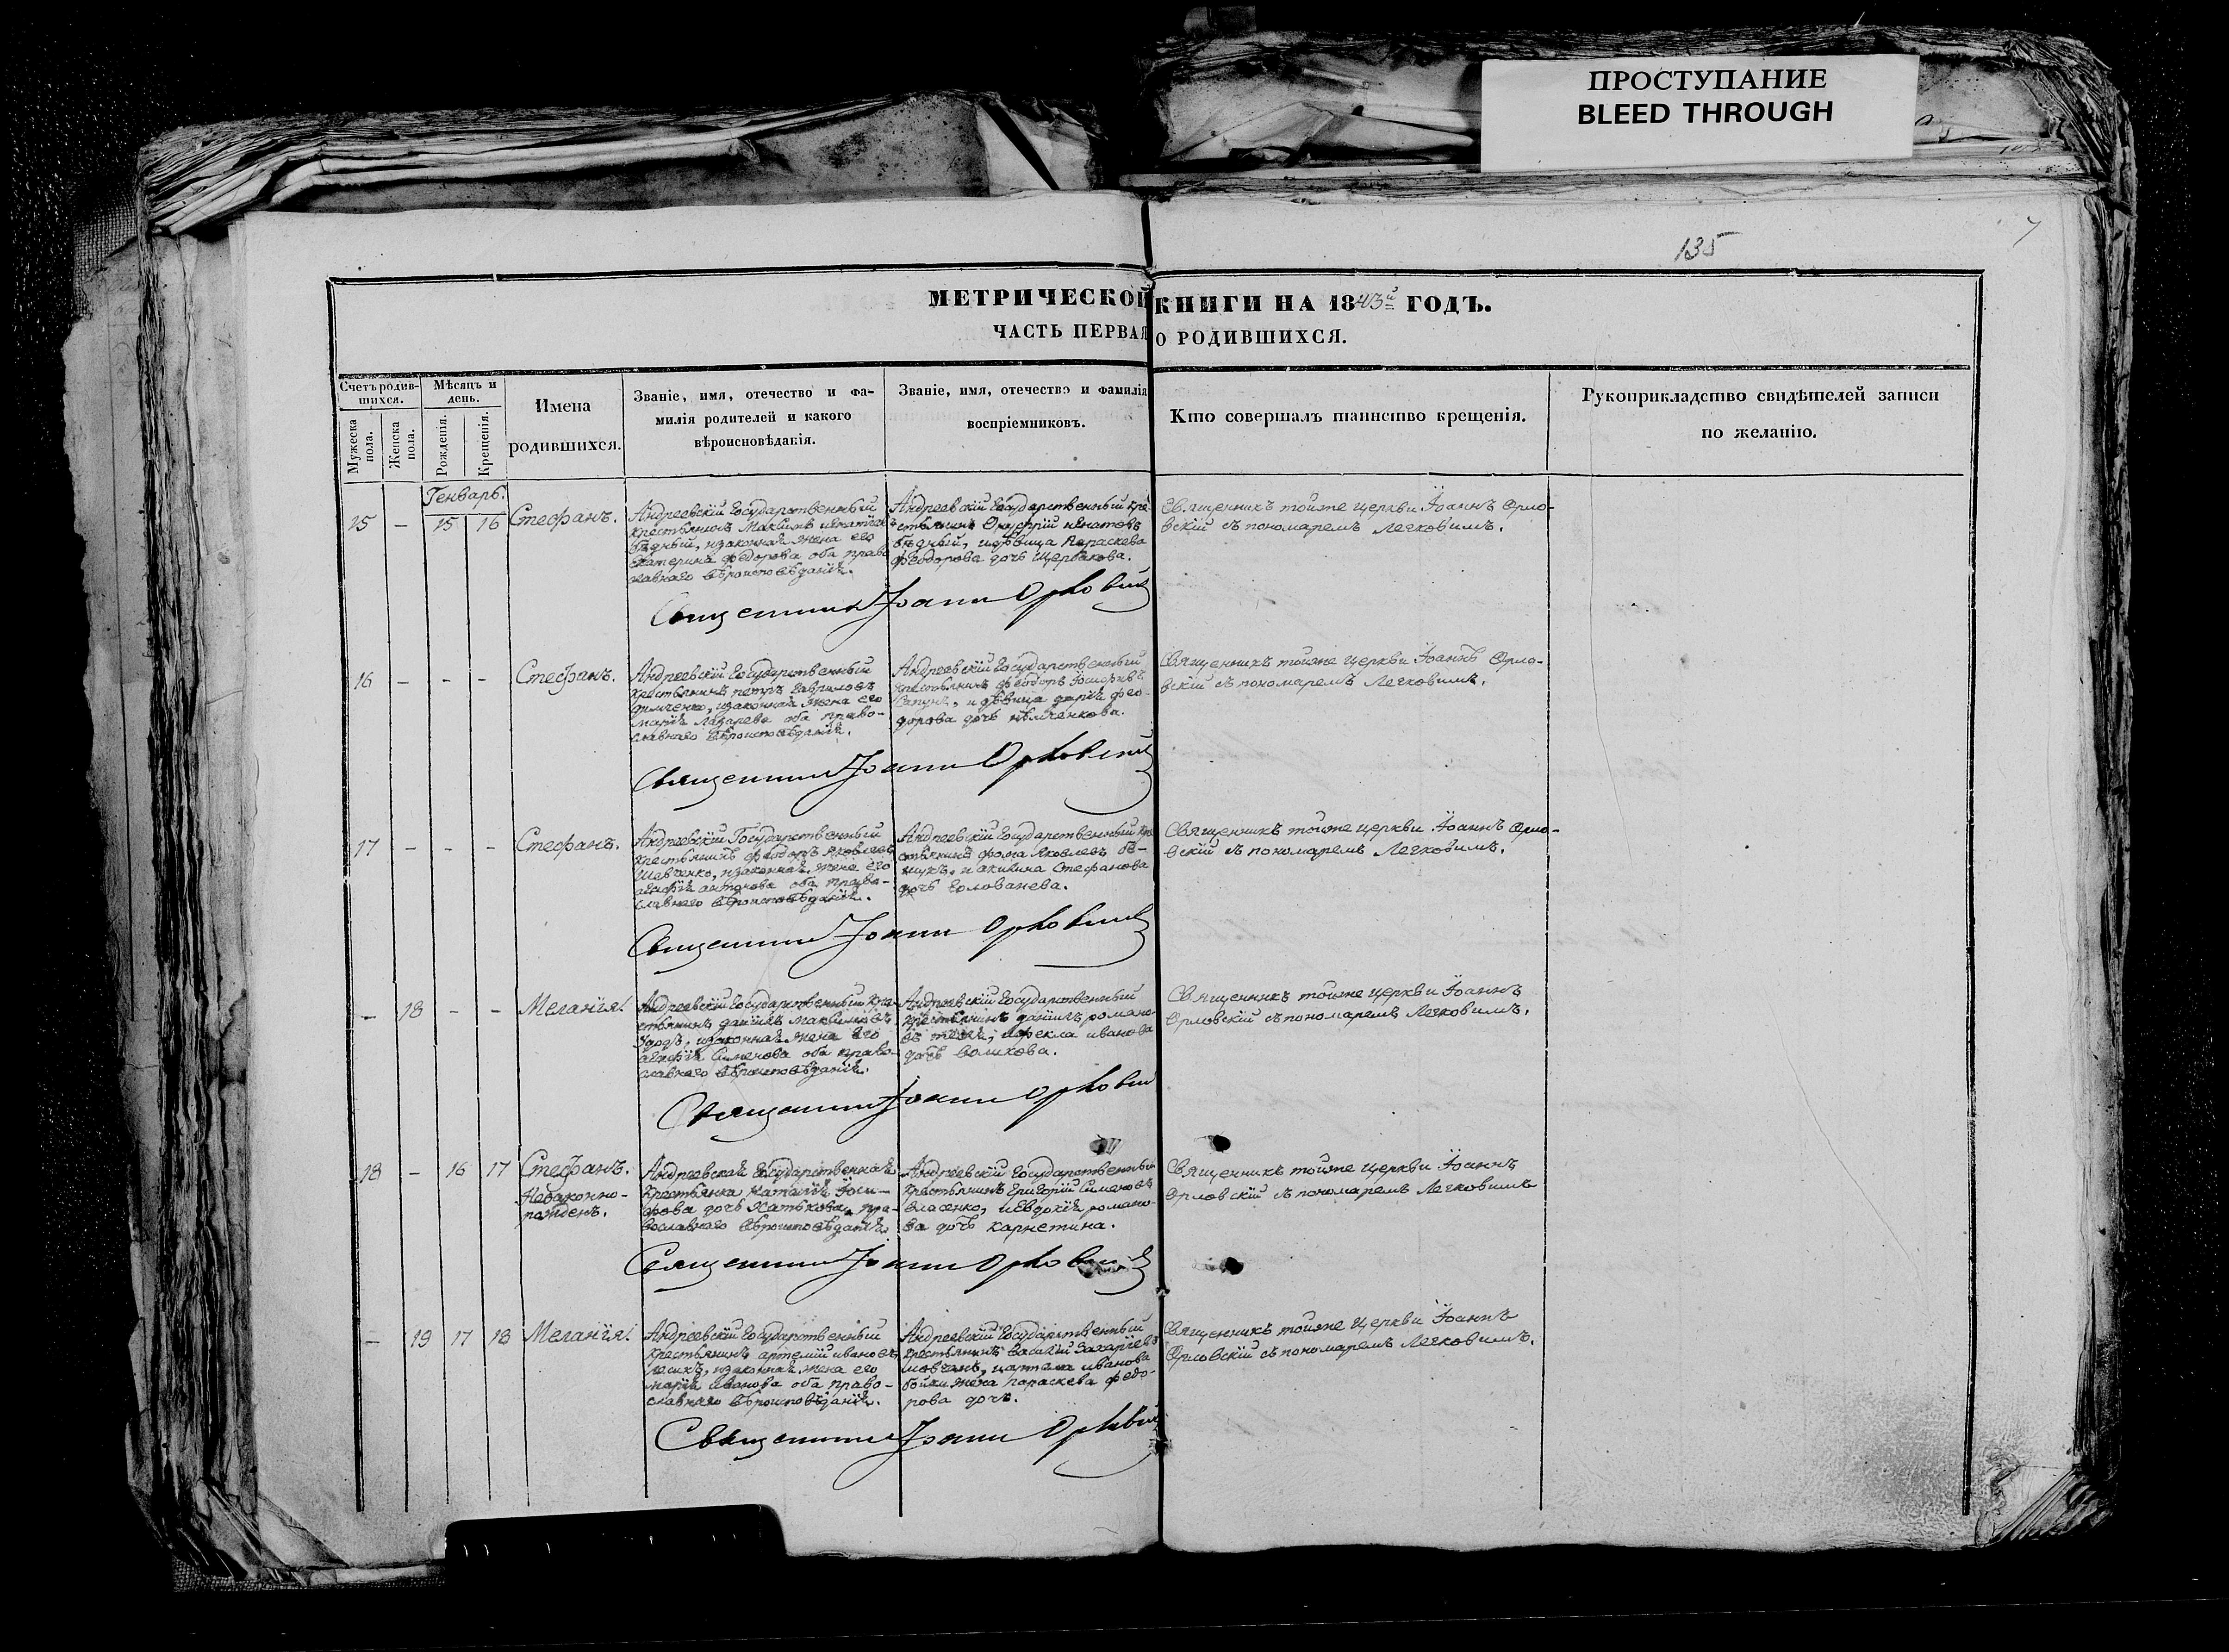 ПРОСТУПАНИЕ
BLEED THROUGH
135
7
МЕТРИЧЕСКОЙ КНИГИ НА 1843й ГОДЪ.
ЧАСТЬ ПЕРВАЯ О РОДИВШИХСЯ.
Счетъ родив-
шихся.
Мужеска пола.
Женска пола.
Мѣсяцъ и
день.
Рожденія.
Крещенія.
Имена
родившихся.
Званіе, имя, отечество и фа-
милія родителей и какого
вѣроисповѣданія.
Званіе, имя, отечество и фамилія
воспріемниковъ.
Кто совершалъ таинство крещенія.
Рукоприкладство свидѣтелей записи
по желанію.
Генварь.
15 – 15 16 Стефанъ.
Андреевскій Государственный
крестьянинъ Максимъ Игнатіевъ
бѣдный, изаконная жена его
Екатерина Федорова оба право
славнаго вѣроисповѣданія.
Андреевскій Государственный кре
стьянинъ Онуфрій Игнатовъ
бѣдный, идѣвица Параскева
Феодорова дочь Щербакова.
Священникъ тойже церкви Іоаннъ Орло-
вскій съ пономаремъ Легковимъ.
Священникъ Іоаннъ Орловскій
16 – – – Стефанъ.
Андреевскій Государственный
крестьянинъ петръ Гавриловъ
изаконная жена его
марія Лазарева оба право-
славнаго вѣроисповѣданія.
Андреевскій Государственный
крестьянинъ Феодоръ Іосифовъ
и дѣвица дарія Фео-
дорова дочь
Священникъ тойже церкви Іоаннъ Орло-
вскій съ пономаремъ Легковимъ.
Священникъ Іоаннъ Орловскій
17 – – – Стефанъ.
Андреевскій Государственный
крестьянинъ Феодоръ Яковлевъ
Шевченко, изаконная жена его
агафія антонова оба право-
славнаго вѣроисповѣданія.
Андреевскій Государственный кре
стьянинъ фома Яковлевъ
и акилина Стефанова
дочь Голованева.
Священникъ тойже церкви Іоаннъ Орло-
вскій съ пономаремъ Легковимъ.
Священникъ Іоаннъ Орловскій
– 18 – – Меланія.
Андреевскій Государственный кре
стьянинъ даніилъ Максимовъ
изаконная жена его
агафія Сименова оба право-
славнаго вѣроисповѣданія.
Андреевскій Государственный
крестьянинъ даніилъ романо-
въ ифекла иванова
дочь Воликова.
Священникъ тойже церкви Іоаннъ
Орловскій съ пономаремъ Легковимъ.
Священникъ Іоаннъ Орловскій
18 – 16 17 Стефанъ.
Незаконно-
рожденъ.
Андреевская Государственная
крестьянка Наталія Іоси-
фова дочь Хатькова, пра-
вославнаго вѣроисповѣданія.
Андреевскій Государственный
крестьянинъ Григорій Сименовъ
Власенко, иевдокія романо-
ва дочь карнетина.
Священникъ тойже церкви Іоаннъ
Орловскій съ пономаремъ Легковимъ
Священникъ Іоаннъ Орловскій
– 19 17 18 Меланія.
Андреевскій Государственный
крестьянинъ артемій ивановъ
изаконная жена его
марія иванова оба право-
славнаго вѣроисповѣданія.
Андреевскій Государственный
крестьянинъ Василій Захаріевъ
иванова
бойки жена параскева федо-
рова дочь.
Священникъ тойже Церкви Іоаннъ
Орловскій съ пономаремъ Легковимъ.
Священникъ Іоаннъ Орловскій